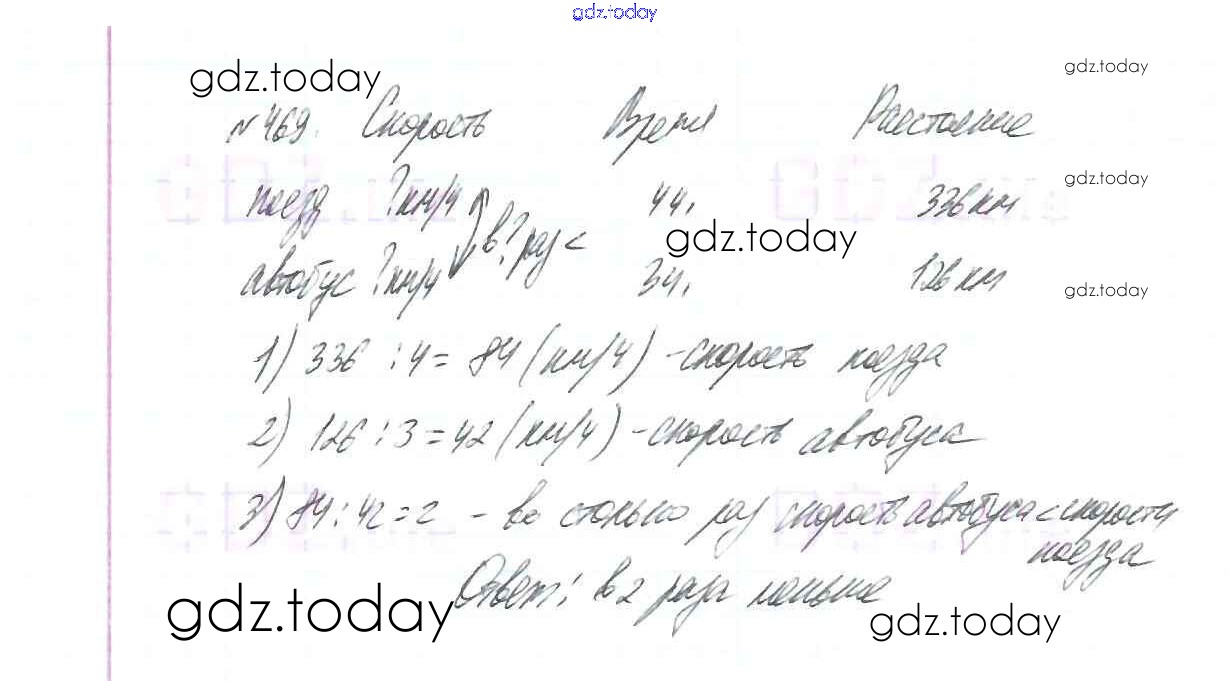 gdz.today
gdz.today
gdz.today
№469. Скорость Время Расстояние
gdz.today
поезд ?км/ч 4ч. 336км
в ? раз <
gdz.today
автобус ?км/ч 3ч. 126км
gdz.today
1) 336 : 4 = 84 (км/ч) - скорость поезда
2) 126 : 3 = 42 (км/ч) - скорость автобуса
3) 84 : 42 = 2 - во столько раз скорость автобуса < скорости
поезда
Ответ: в 2 раза меньше
gdz.today
gdz.today